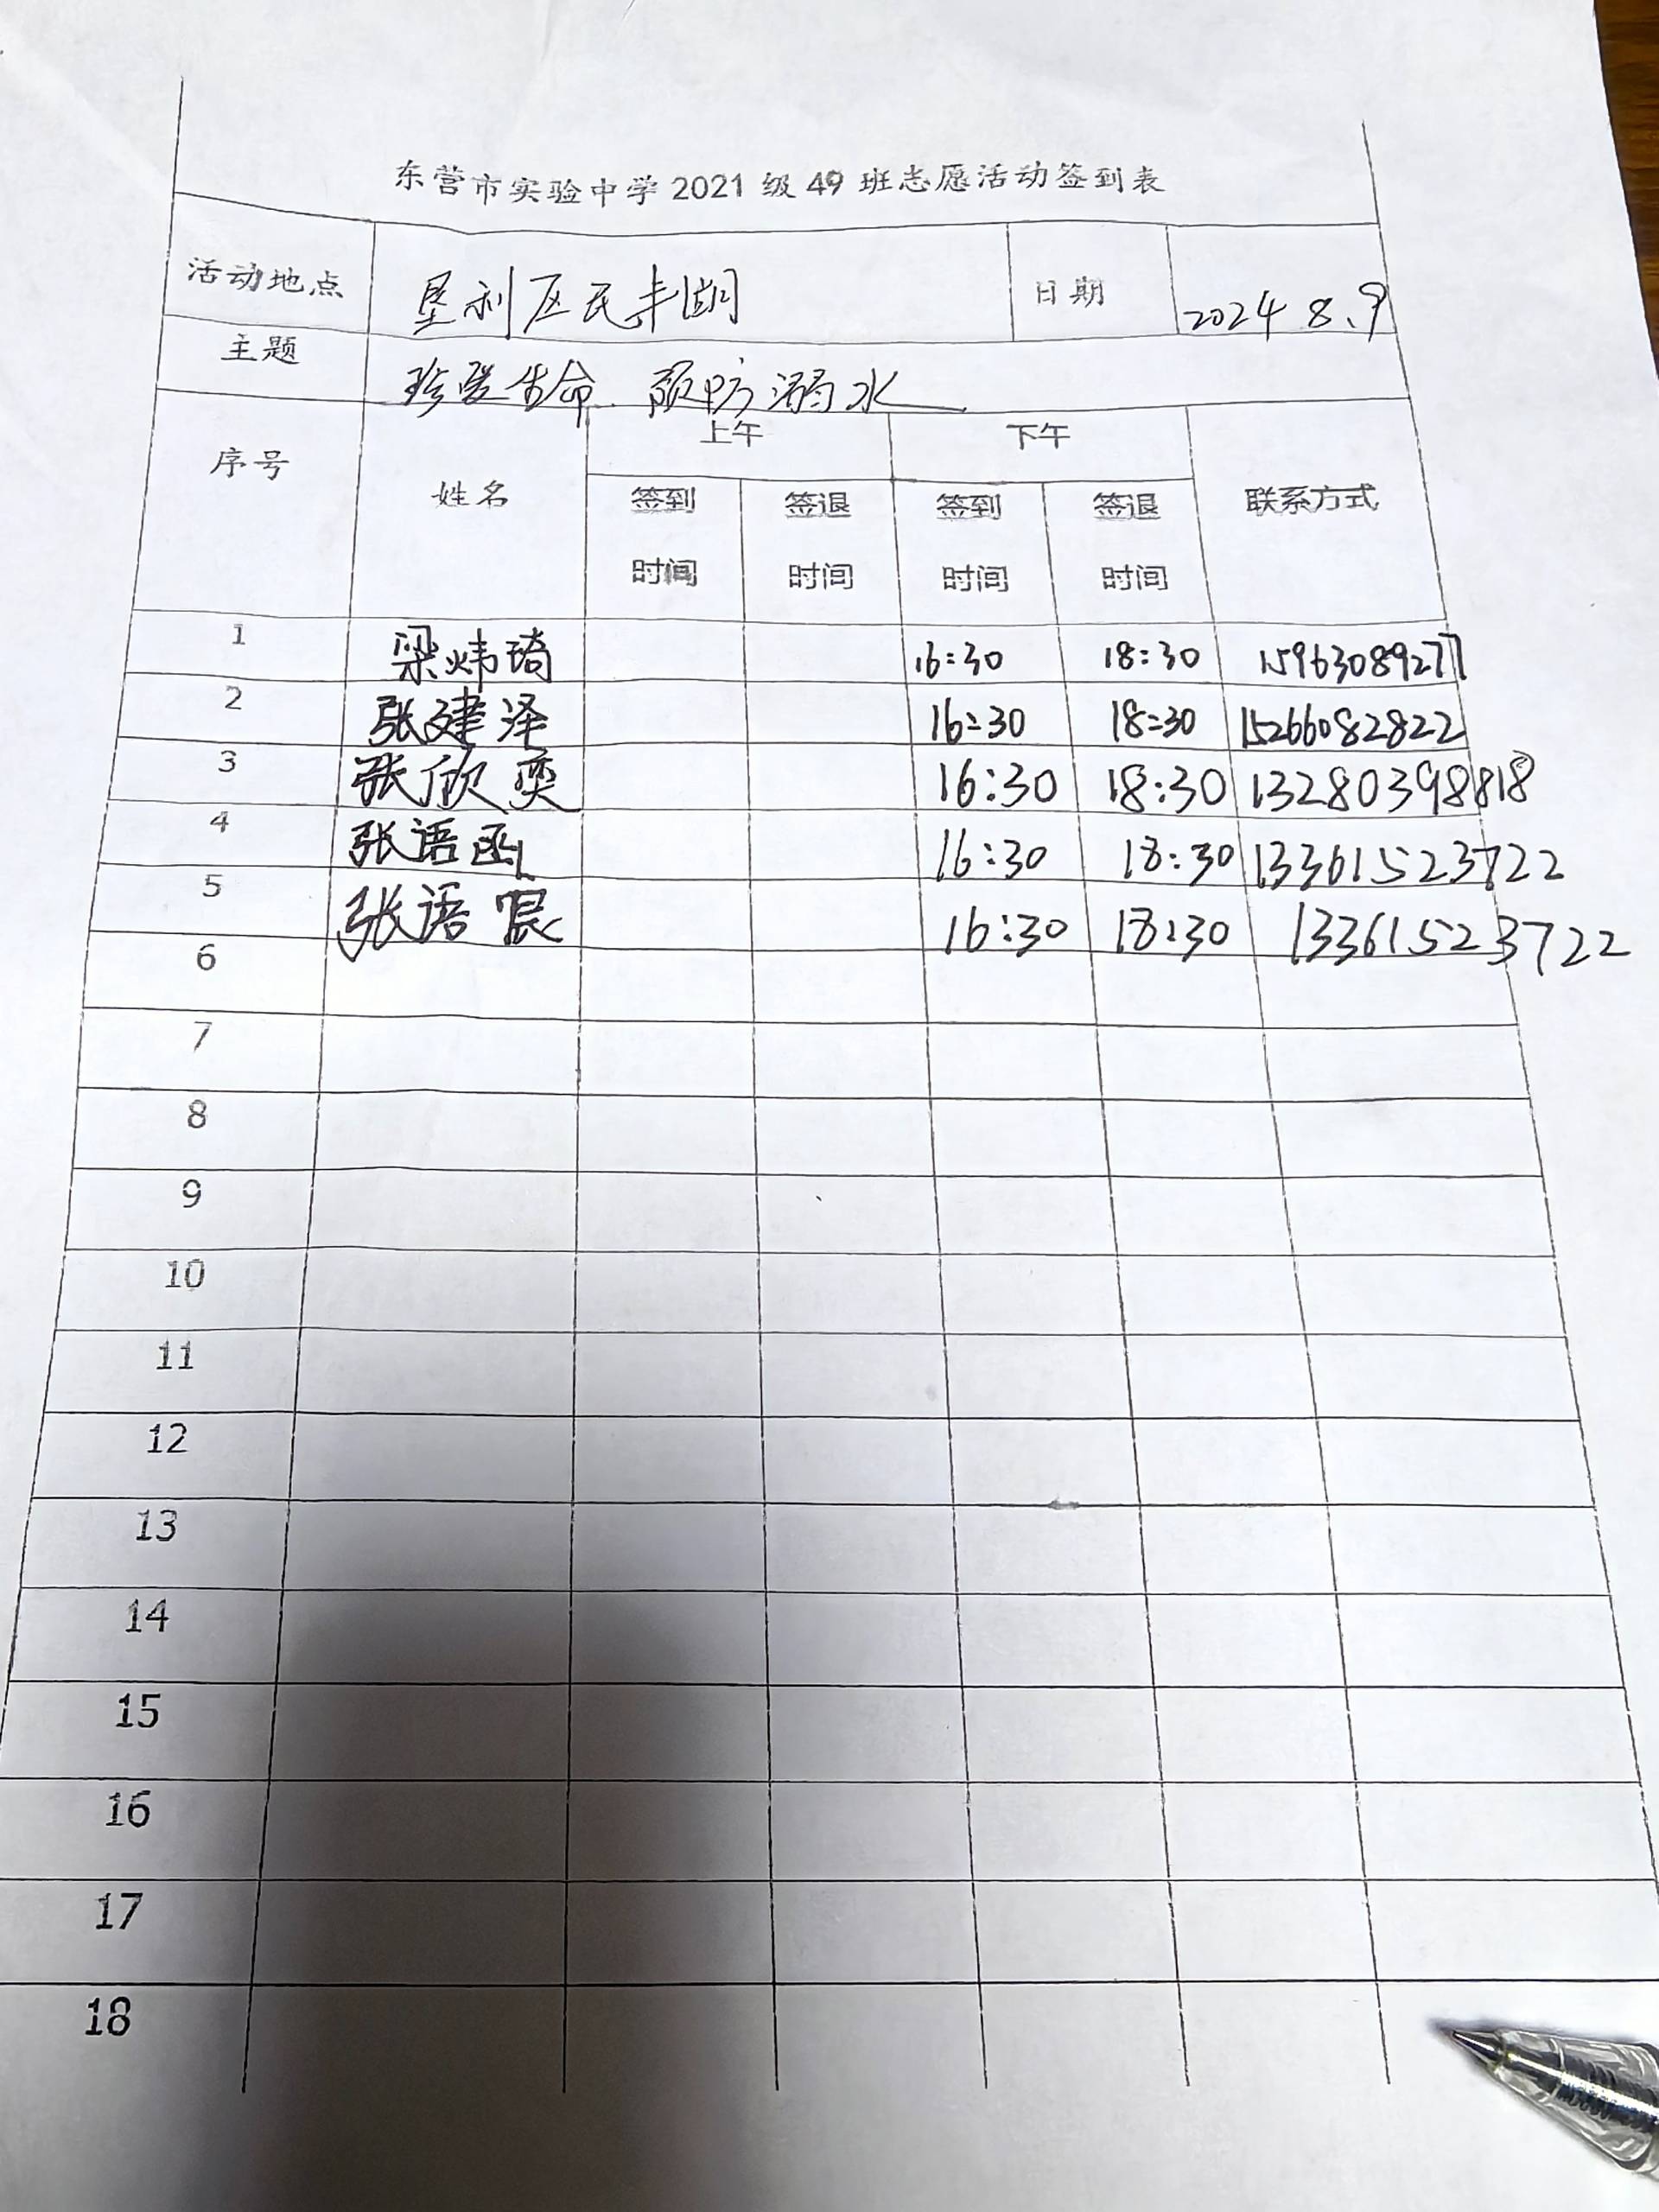 东营市实验中学2021级49班志愿活动签到表
活动地点 垦利区民丰湖 日期 2024 8.9
主题 珍爱生命、预防溺水
序号 姓名 上午 下午 联系方式
签到时间 签退时间 签到时间 签退时间
1 梁炜琦 16:30 18:30 15963089277
2 张建泽 16:30 18:30 15266082822
3 张欣奕 16:30 18:30 13280398818
4 张语函 16:30 18:30 13361523722
5 张语 16:30 18:30 13361523722
6
7
8
9
10
11
12
13
14
15
16
17
18